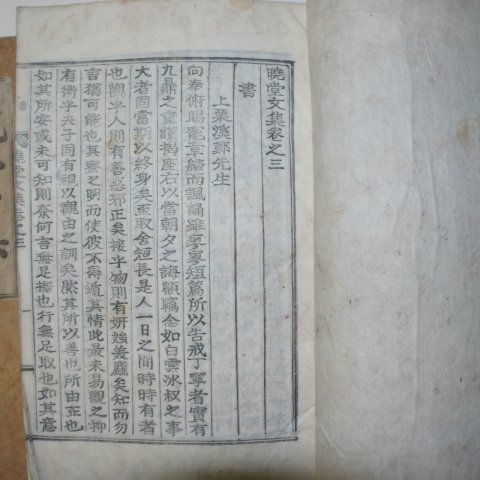 曉堂文集卷之三
書
上栗溪鄭先生
向奉俯賜寵章歸而諷誦雖寥寥短篇所以告戒丁寧者實有
九鼎之重謹揭座右以當朝夕之誨顧竊念如白雲冰叔之事
大者固當期以終身矣至取舍短長是人一日之間時時有者
也觀乎人則有善惡邪正矣接乎物則有妍媸美麤矣知而勿
言猶可能也其察之明而使彼不得遁其情此最未易觀之抑
有術乎夫子固有視以觀由之訓矣然其所以善也所由正也
如其所安或未可知則奈何言無足擇也行無足取也如其意
曉堂文集卷之三